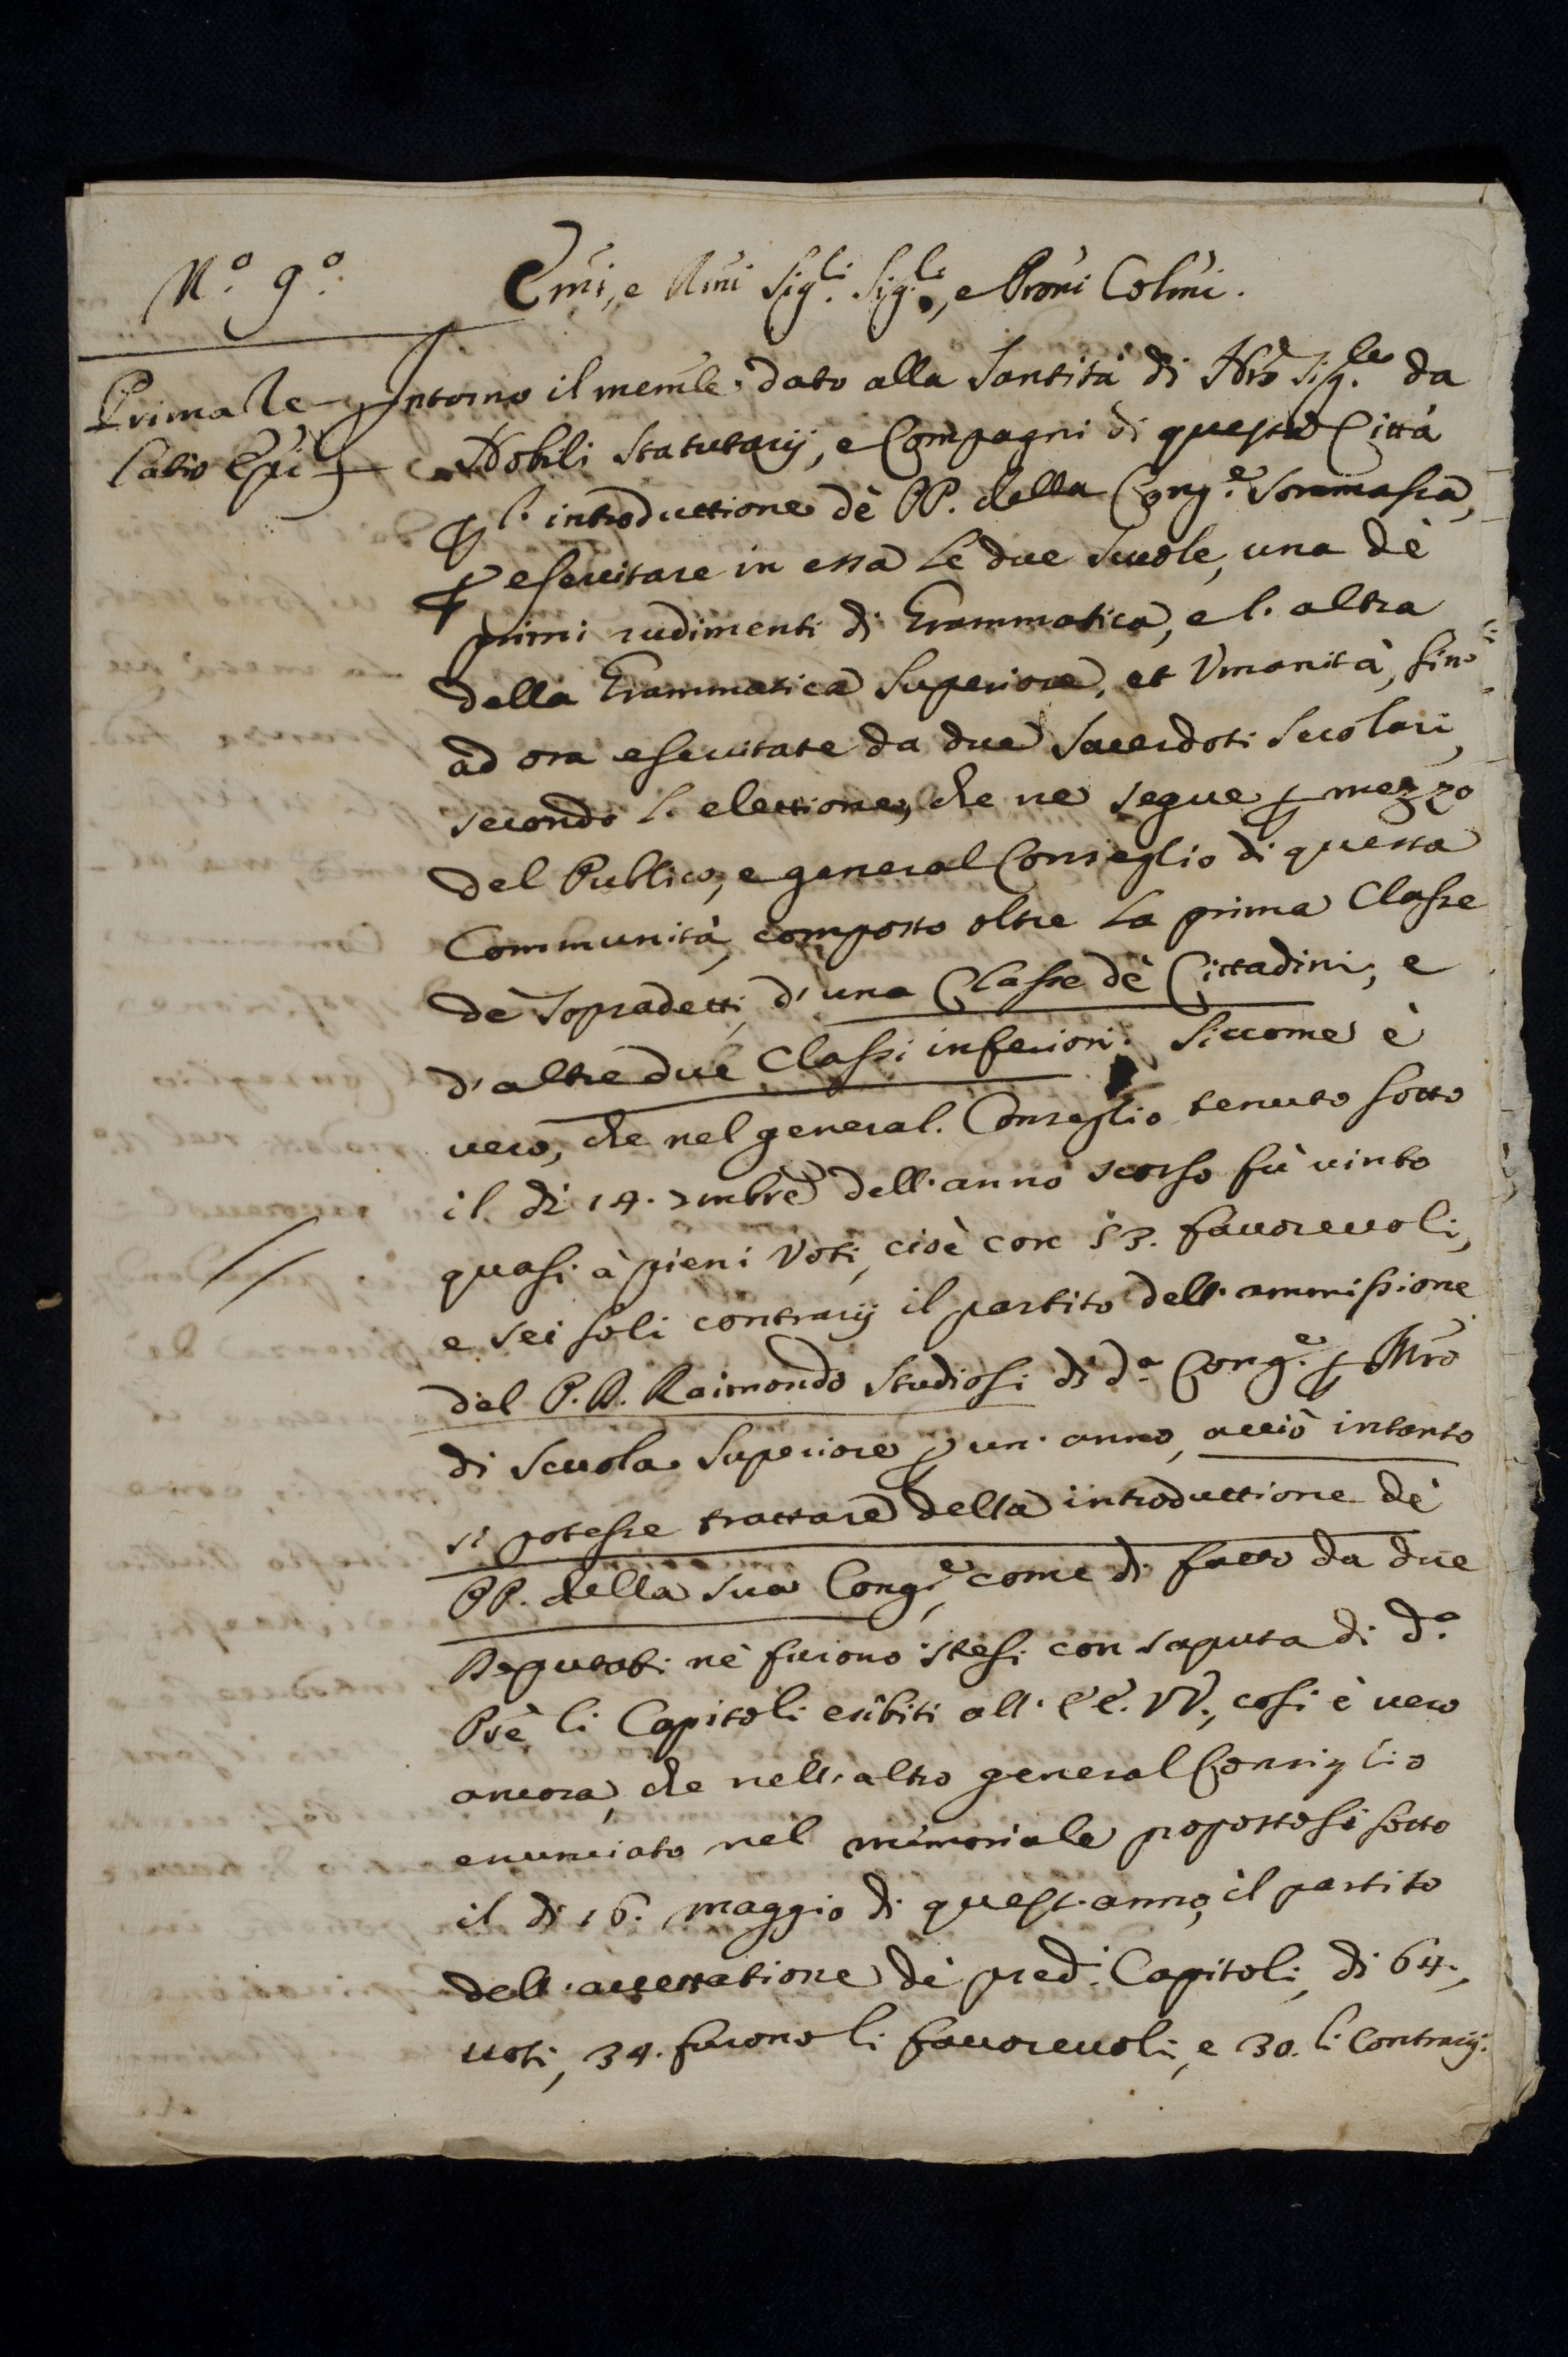 N.º 9.º
Emi, e Rmi Sig.li Sig.li, e Proni Colmi.
Prima Re-
latio Epi
Intorno il memle dato alla Santità di Nro Sig.le da
Nobili Statutarij, e Compagni di questa Città
p l'introduttione dè PP. della Cong.e Sommasca,
p esercitare in essa le due Scuole, una dè
primi rudimenti di Grammatica, e l'altra
della Grammatica Superiore, et Umanità, fin'
ad ora esercitate da due Sacerdoti Secolari,
secondo l'elettione, che ne segue p mezzo
del Publico, e general Conseglio di questa
Communità, composto oltre la prima Classe
dè sopradetti, d'una Classe dè Cittadini, e
d'altre due Classi inferiori. Siccome è
vero, che nel general Conseglio tenuto sotto
il dì 14. 9mbre dell'anno scorso fù vinto
quasi à pieni Voti, cioè con 53. favorevoli,
e sei soli contrarij il partito dell'ammissione
del P. D. Raimondo Studiosi di d.a Cong.e p Mro
di Scuola Superiore p un'anno, acciò intanto
si potesse trattare della introduttione dè
PP. della sua Cong.e, come di fatto da due
Deputati nè furono stesi con saputa di d.o
Pré li Capitoli esibiti all'EE. VV., così è vero
ancora, che nell'altro general Consiglio
enunciato nel memoriale propostosi sotto
il dì 16. maggio di quest'anno, il partito
dell'accettatione dè pred.i Capitoli, di 64.
voti, 34. furono li favorevoli, e 30. li Contrarij.